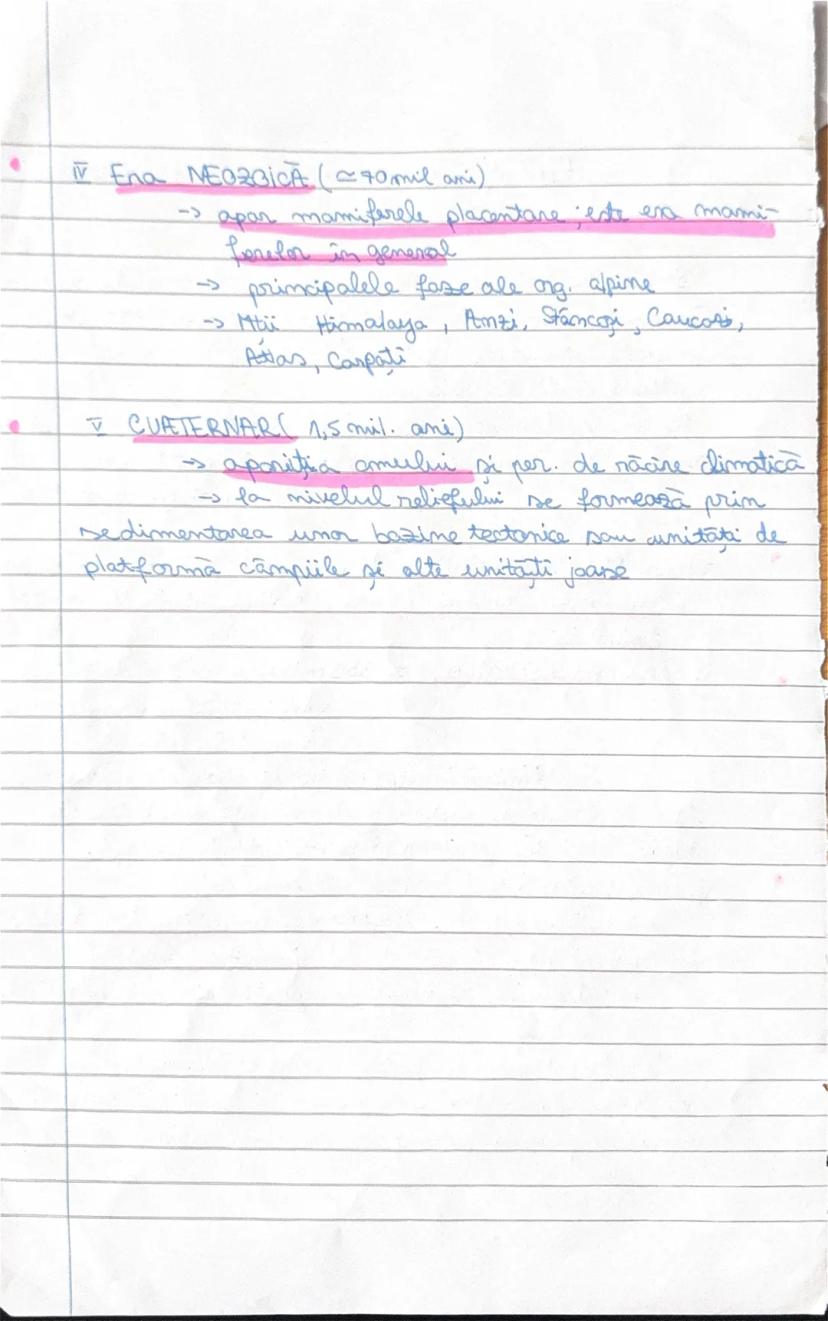 IV Era NEOZOICĂ (≃70 mil ani)
-> apar mamiferele placentare ; este era mami-
ferelor în general
-> principalele faze ale org. alpine
-> Mții Himalaya, Anzi, Stâncoși, Caucaz,
Atlas, Carpați
V CUATERNAR( 1,5 mil. ani)
-> apariția omului și per. de răcire climatică
-> la nivelul reliefului se formează prin
sedimentarea unor bazine tectonice sau unități de
platformă câmpiile și alte unități joase